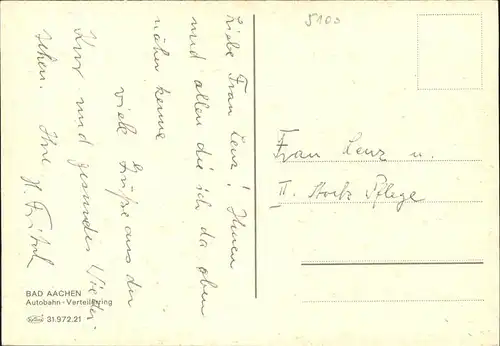 Liebe Frau Lenz! Ihnen
und allen die ich da oben
näher kenne
viele Grüße aus der
Kur und gesundes Wieder-
sehen. Ihre H. Fritsch
5100
Frau Lenz u.
II. Stock Pflege
BAD AACHEN
Autobahn-Verteilerring
31.972.21